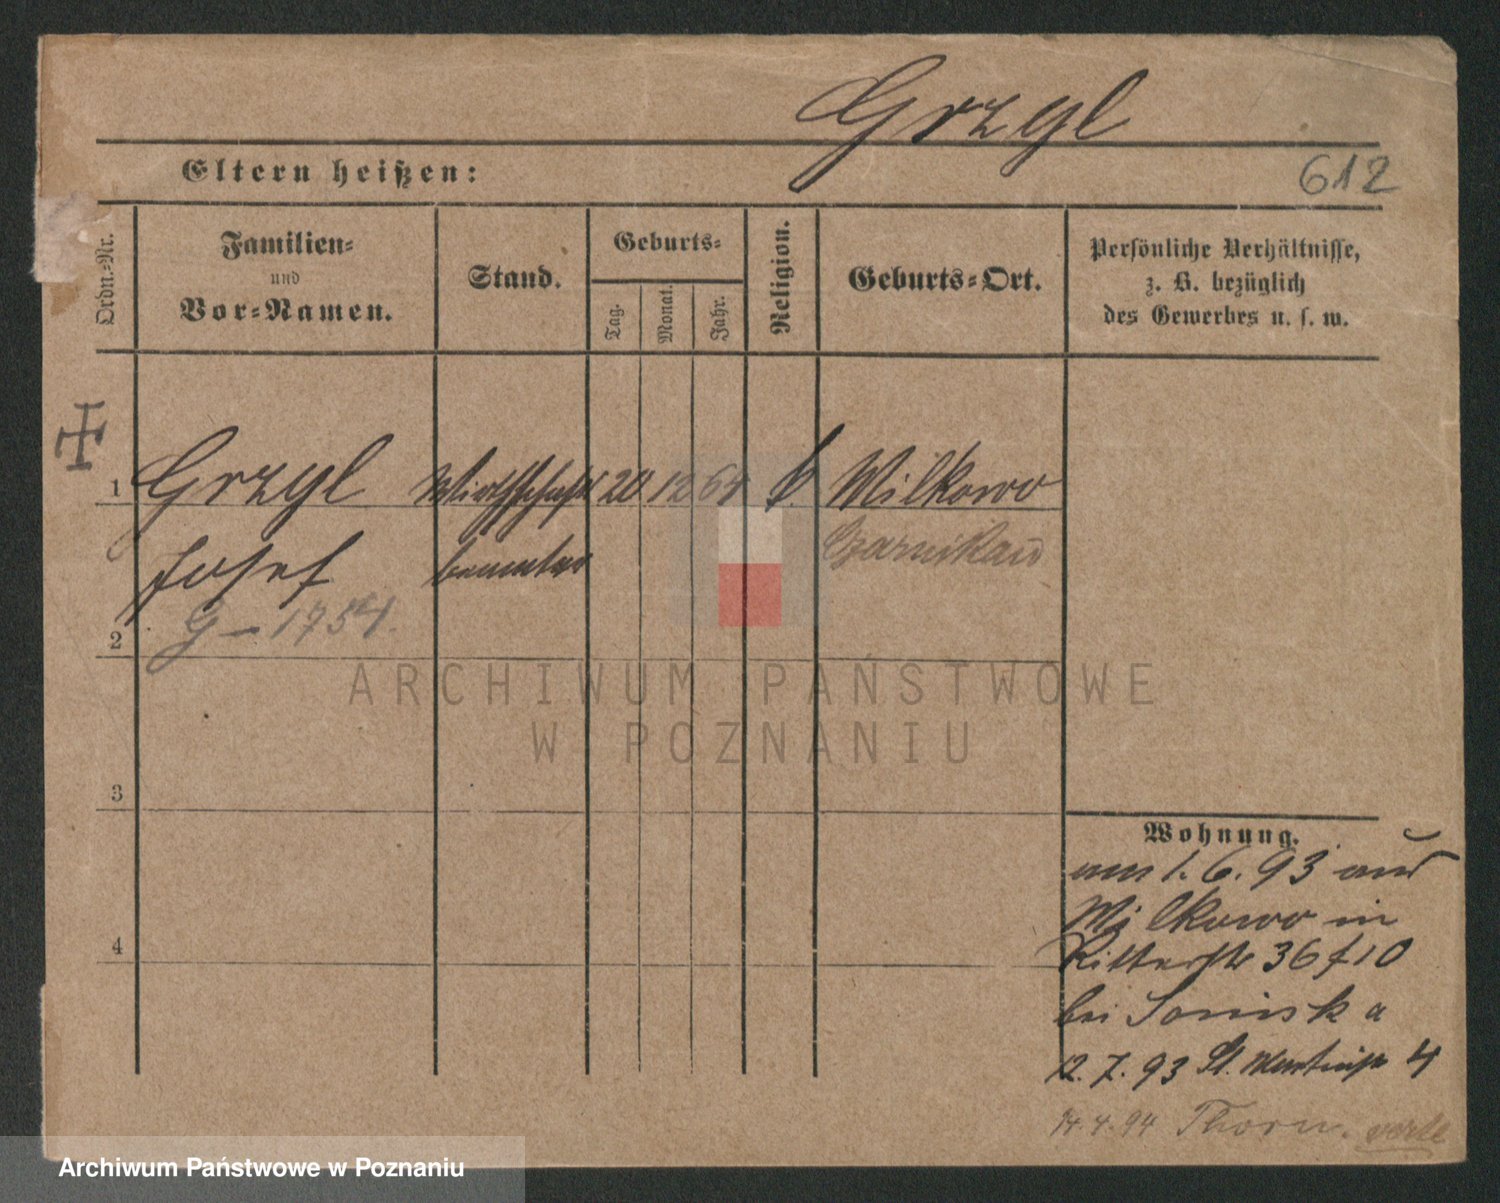 Grzyl
Eltern heißen:
612
Ordn.=Nr.
Familien=
und
Vor=Namen.
Stand.
Geburts=
Tag.
Monat.
Jahr.
Religion.
Geburts=Ort.
Persönliche Verhältnisse,
z. B. bezüglich
des Gewerbes u. s. w.
1
Grzyl
Wirthschafts
20
12
64
Wilkowo
Josef
beamter
Czarnikau
2
G - 1754.
3
4
ARCHIWUM PAŃSTWOWE
W POZNANIU
Wohnung.
am 1. 6. 93 aus
Wilkowo in
Ritterstr 36 f 10
bei
12. 7. 93 St. Martinstr 4
14. 4. 94 Thorn. verte
Archiwum Państwowe w Poznaniu